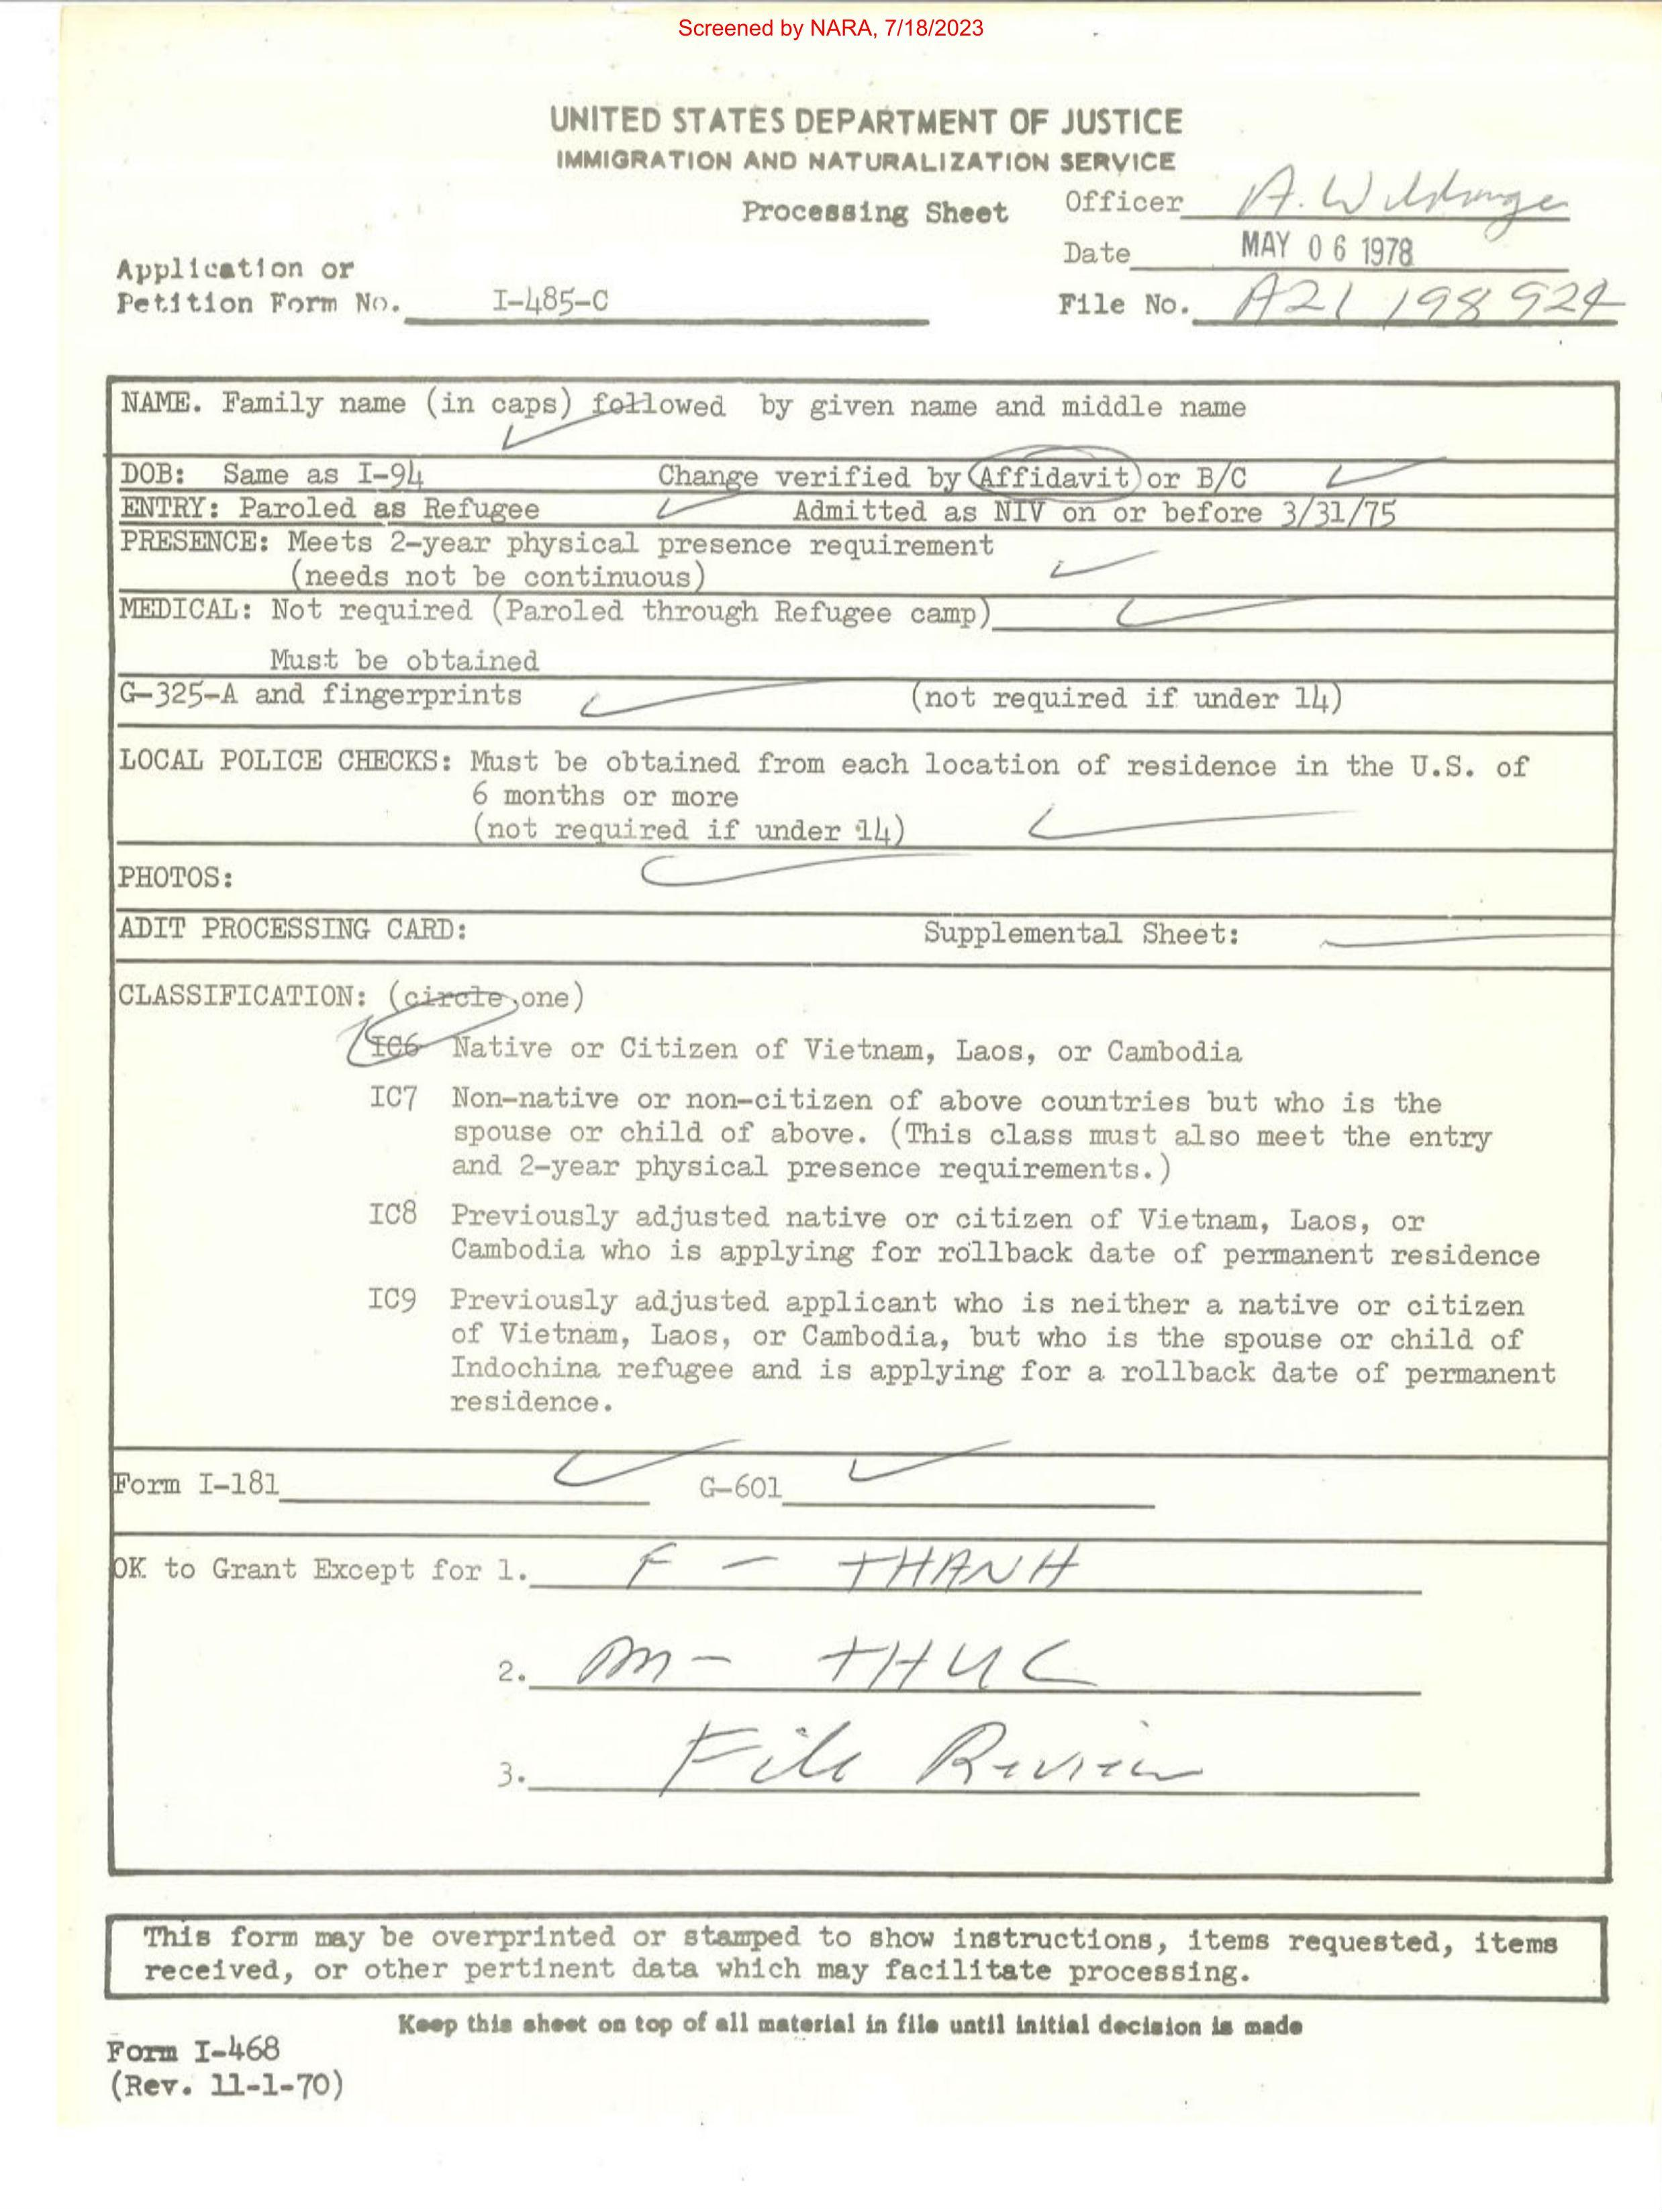 Screened by NARA, 7/18/2023
UNITED STATES DEPARTMENT OF JUSTICE
IMMIGRATION AND NATURALIZATION SERVICE
Processing Sheet
Officer A.
Date MAY 06 1978
Application or
Petition Form No. I-485-C
File No. A21 198 924
NAME. Family name (in caps) followed by given name and middle name
DOB: Same as I-94 Change verified by Affidavit or B/C
ENTRY: Paroled as Refugee Admitted as NIV on or before 3/31/75
PRESENCE: Meets 2-year physical presence requirement
(needs not be continuous)
MEDICAL: Not required (Paroled through Refugee camp)
Must be obtained
G-325-A and fingerprints (not required if under 14)
LOCAL POLICE CHECKS: Must be obtained from each location of residence in the U.S. of
6 months or more
(not required if under 14)
PHOTOS:
ADIT PROCESSING CARD: Supplemental Sheet:
CLASSIFICATION: (circle one)
IC6 Native or Citizen of Vietnam, Laos, or Cambodia
IC7 Non-native or non-citizen of above countries but who is the
spouse or child of above. (This class must also meet the entry
and 2-year physical presence requirements.)
IC8 Previously adjusted native or citizen of Vietnam, Laos, or
Cambodia who is applying for rollback date of permanent residence
IC9 Previously adjusted applicant who is neither a native or citizen
of Vietnam, Laos, or Cambodia, but who is the spouse or child of
Indochina refugee and is applying for a rollback date of permanent
residence.
Form I-181 G-601
OK to Grant Except for 1. F - THANH
2. M - THUC
3. File Review
This form may be overprinted or stamped to show instructions, items requested, items
received, or other pertinent data which may facilitate processing.
Keep this sheet on top of all material in file until initial decision is made
Form I-468
(Rev. 11-1-70)